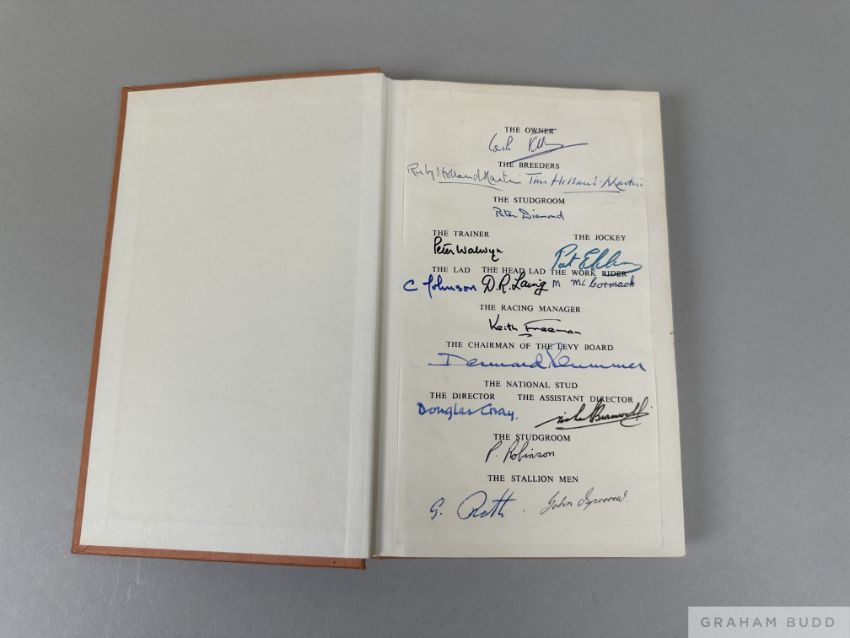 THE OWNER
THE BREEDERS
Ruby Holland Martin Tim Holland-Martin
THE STUDGROOM
Peter Diamond
THE TRAINER THE JOCKEY
Peter Walwyn Pat Eddery
THE LAD THE HEAD LAD THE WORK RIDER
C Johnson D.R. Laing M McCormack
THE RACING MANAGER
Keith Freeman
THE CHAIRMAN OF THE LEVY BOARD
Desmond Plummer
THE NATIONAL STUD
THE DIRECTOR THE ASSISTANT DIRECTOR
Douglas Gray. Michael Bramwell
THE STUDGROOM
P. Robinson
THE STALLION MEN
G. John
GRAHAM BUDD